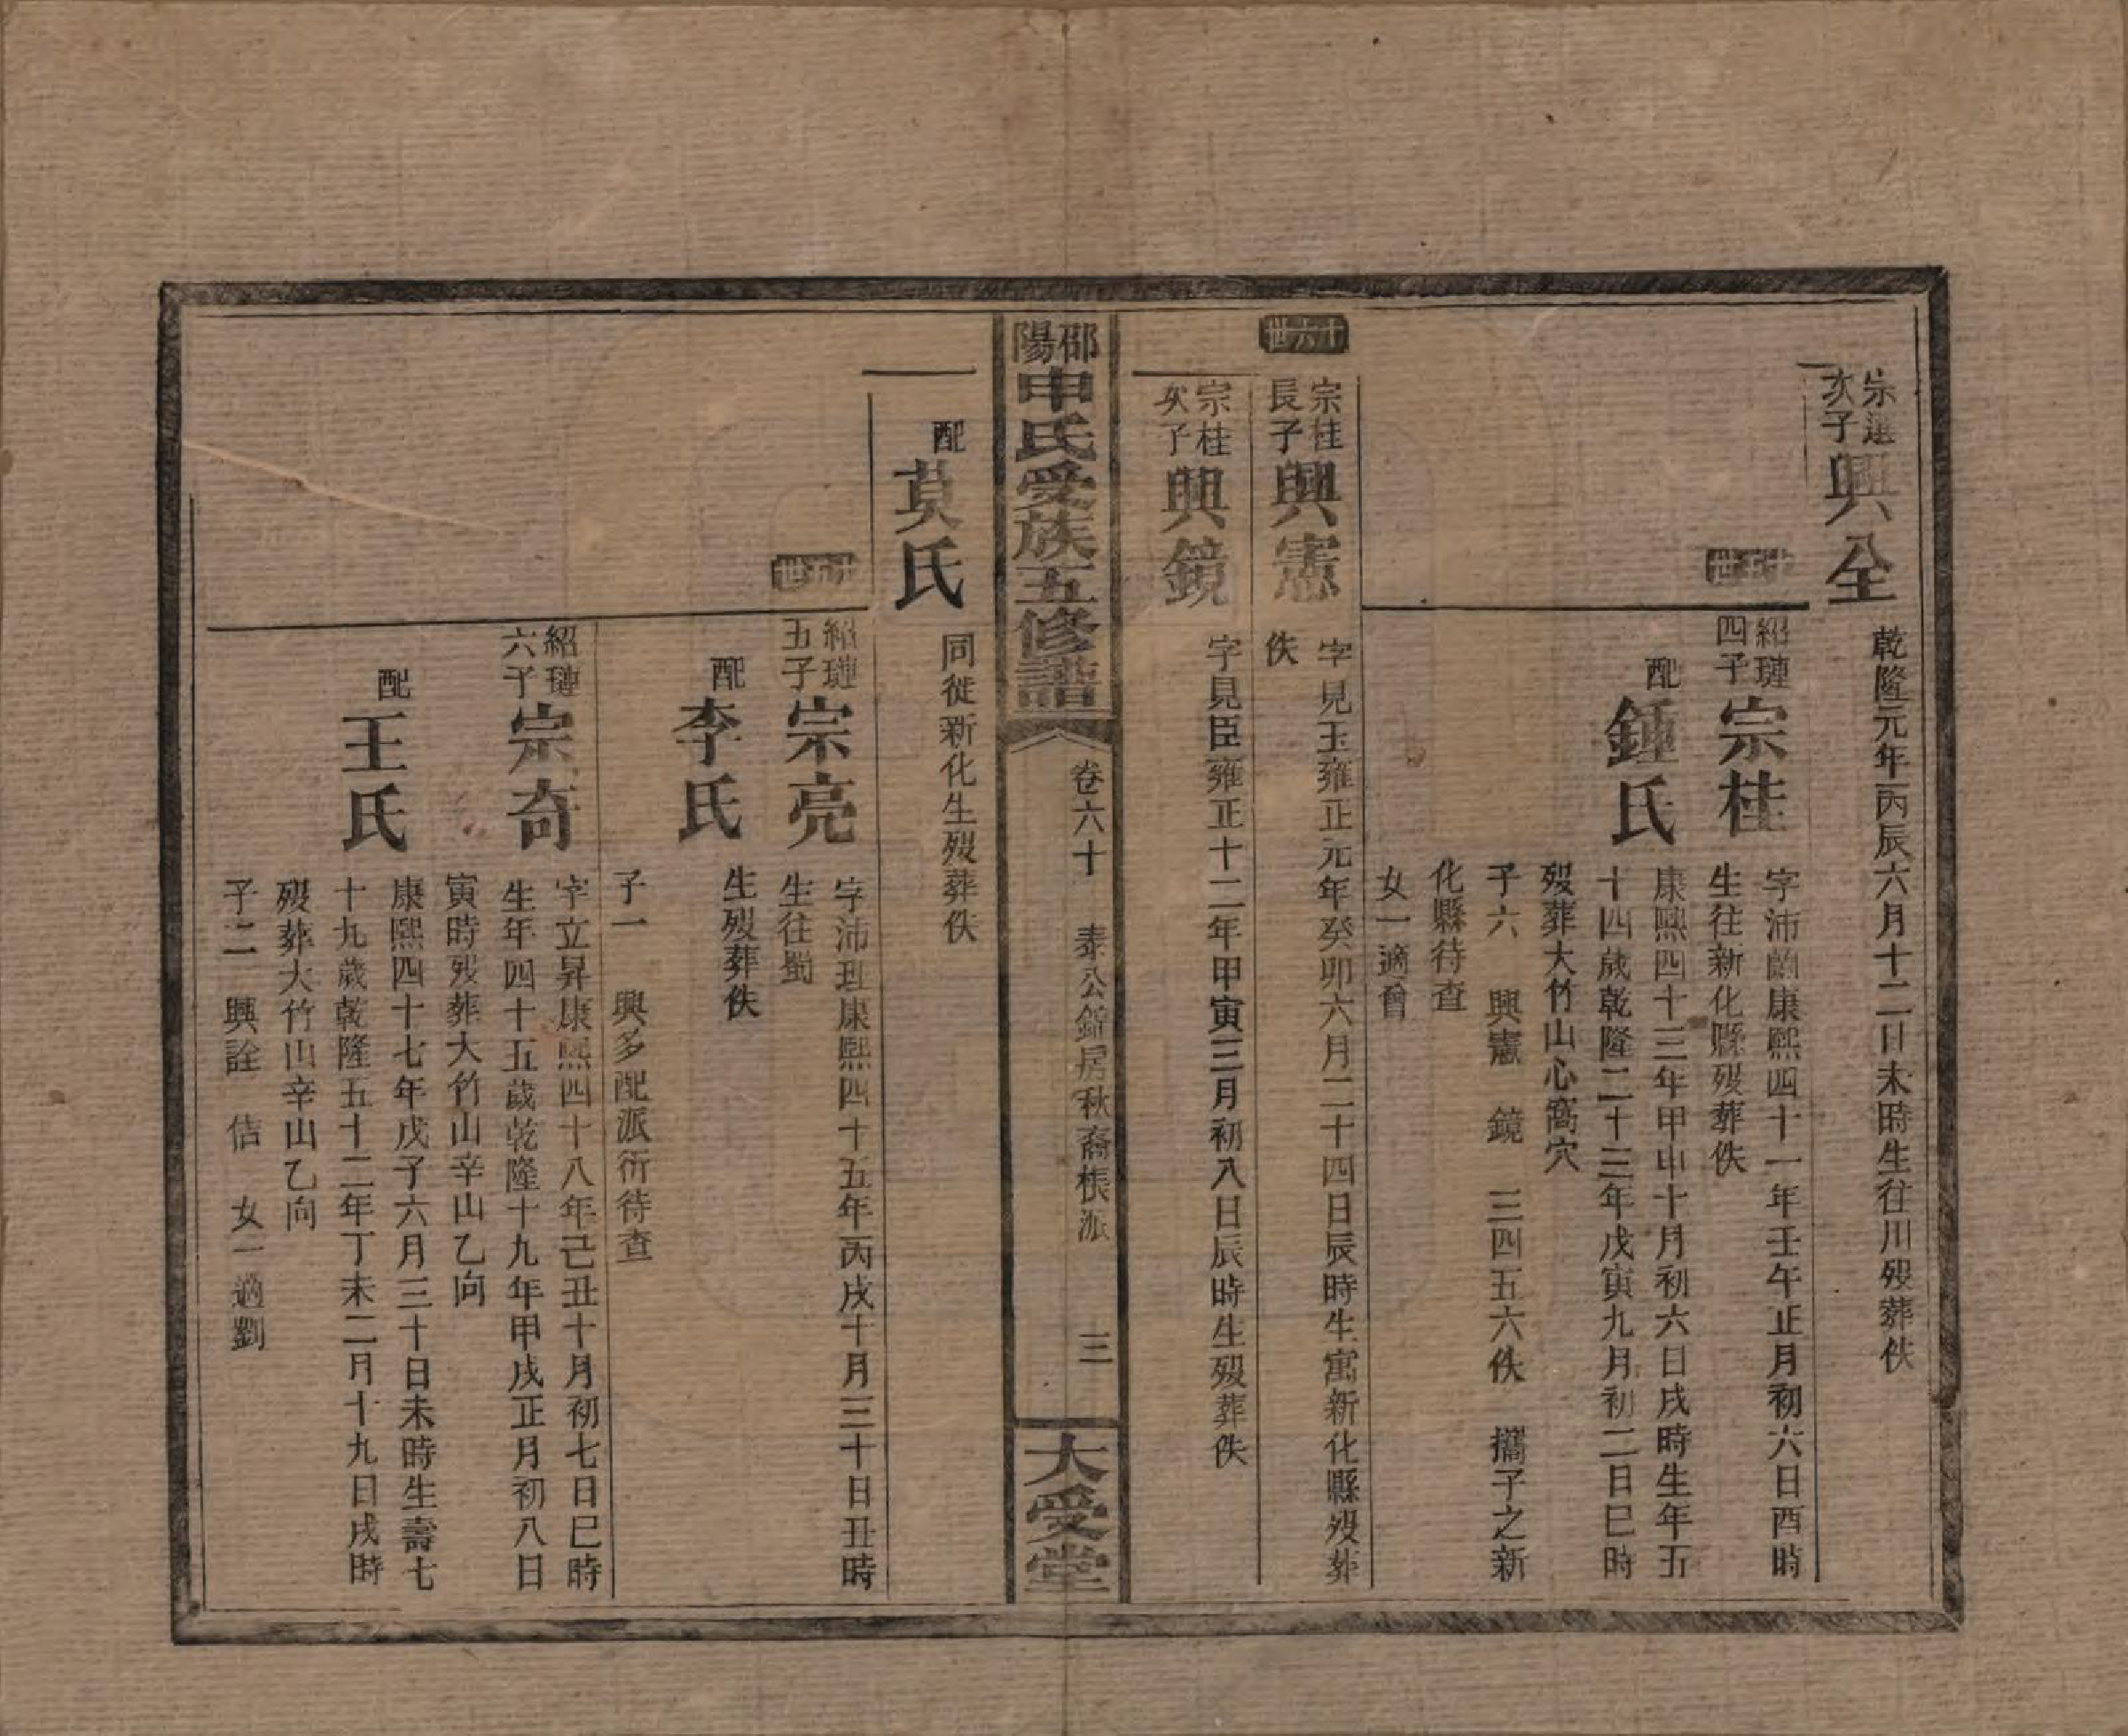 宗選次子
興全
乾隆元年丙辰六月十二日未時生往川歿葬佚
十五世
紹璉四子
宗桂
字沛蘭康熙四十一年壬午正月初六日酉時
生往新化縣歿葬佚
配
鍾氏
康熙四十三年甲申十月初六日戌時生年五
十四歲乾隆二十三年戊寅九月初二日巳時
歿葬大竹山心窩穴
子六 興憲 鏡 三四五六佚 攜子之新
化縣待查
女一適曾
十六世
宗桂長子
興憲
字見玉雍正元年癸卯六月二十四日辰時生寓新化縣歿葬
佚
宗桂次子
興鏡
字見臣雍正十二年甲寅三月初八日辰時生歿葬佚
邵陽申氏受族五修譜
卷六十 泰公 房秋裔棖派 三
大受堂
配
莫氏
同徙新化生歿葬佚
十五世
紹璉五子
宗亮
字沛珽康熙四十五年丙戌十月三十日丑時
生往蜀
配
李氏
生歿葬佚
子一 興多配派衍待查
紹璉六子
宗奇
字立昇康熙四十八年己丑十月初七日巳時
生年四十五歲乾隆十九年甲戌正月初八日
寅時歿葬大竹山辛山乙向
配
王氏
康熙四十七年戊子六月三十日未時生壽七
十九歲乾隆五十二年丁未二月十九日戌時
歿葬大竹山辛山乙向
子二 興詮 佶 女一適劉